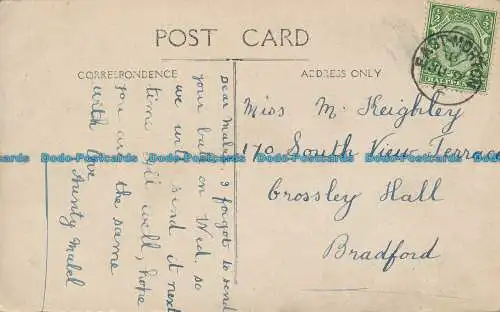 POST CARD
CORRESPONDENCE
ADDRESS ONLY
Dear Mabel, I forgot to send
your bulbs on Wed. so
we will send it next
time. Still well, hope
you are the same
with love
Aunty Mabel
Miss M. Keighley
170 South View Terrace
Crossley Hall
Bradford
EAST MORTON
Dodo-Postcards Dodo-Postcards Dodo-Postcards Dodo-Postcards Dodo-Postcards